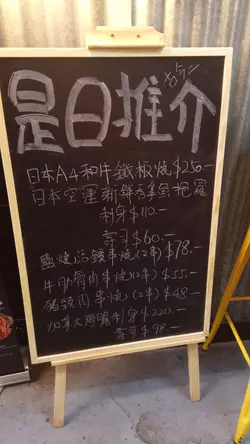 是日推介
日本A4和牛鐵板燒$250.-
日本空運新鮮吞拿魚腩
刺身$110.-
壽司$60.-
鹽燒活鰻串燒(2串)$78.-
牛肋骨肉串燒(2串)$55.-
豬頸肉串燒(2串)$48.-
加拿大 刺身$220.-
壽司$98.-